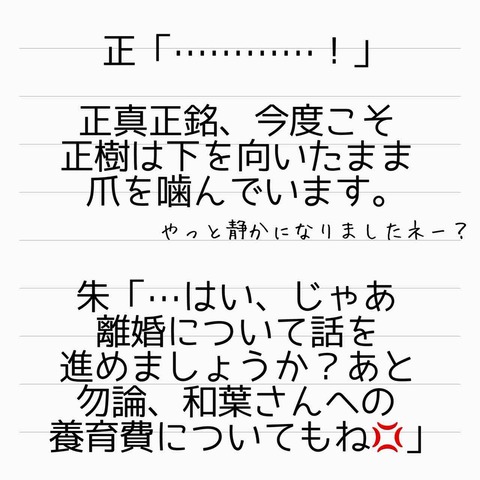 正「…………！」
正真正銘、今度こそ
正樹は下を向いたまま
爪を噛んでいます。
やっと静かになりましたネー？
朱「…はい、じゃあ
離婚について話を
進めましょうか？あと
勿論、和葉さんへの
養育費についてもね💢」